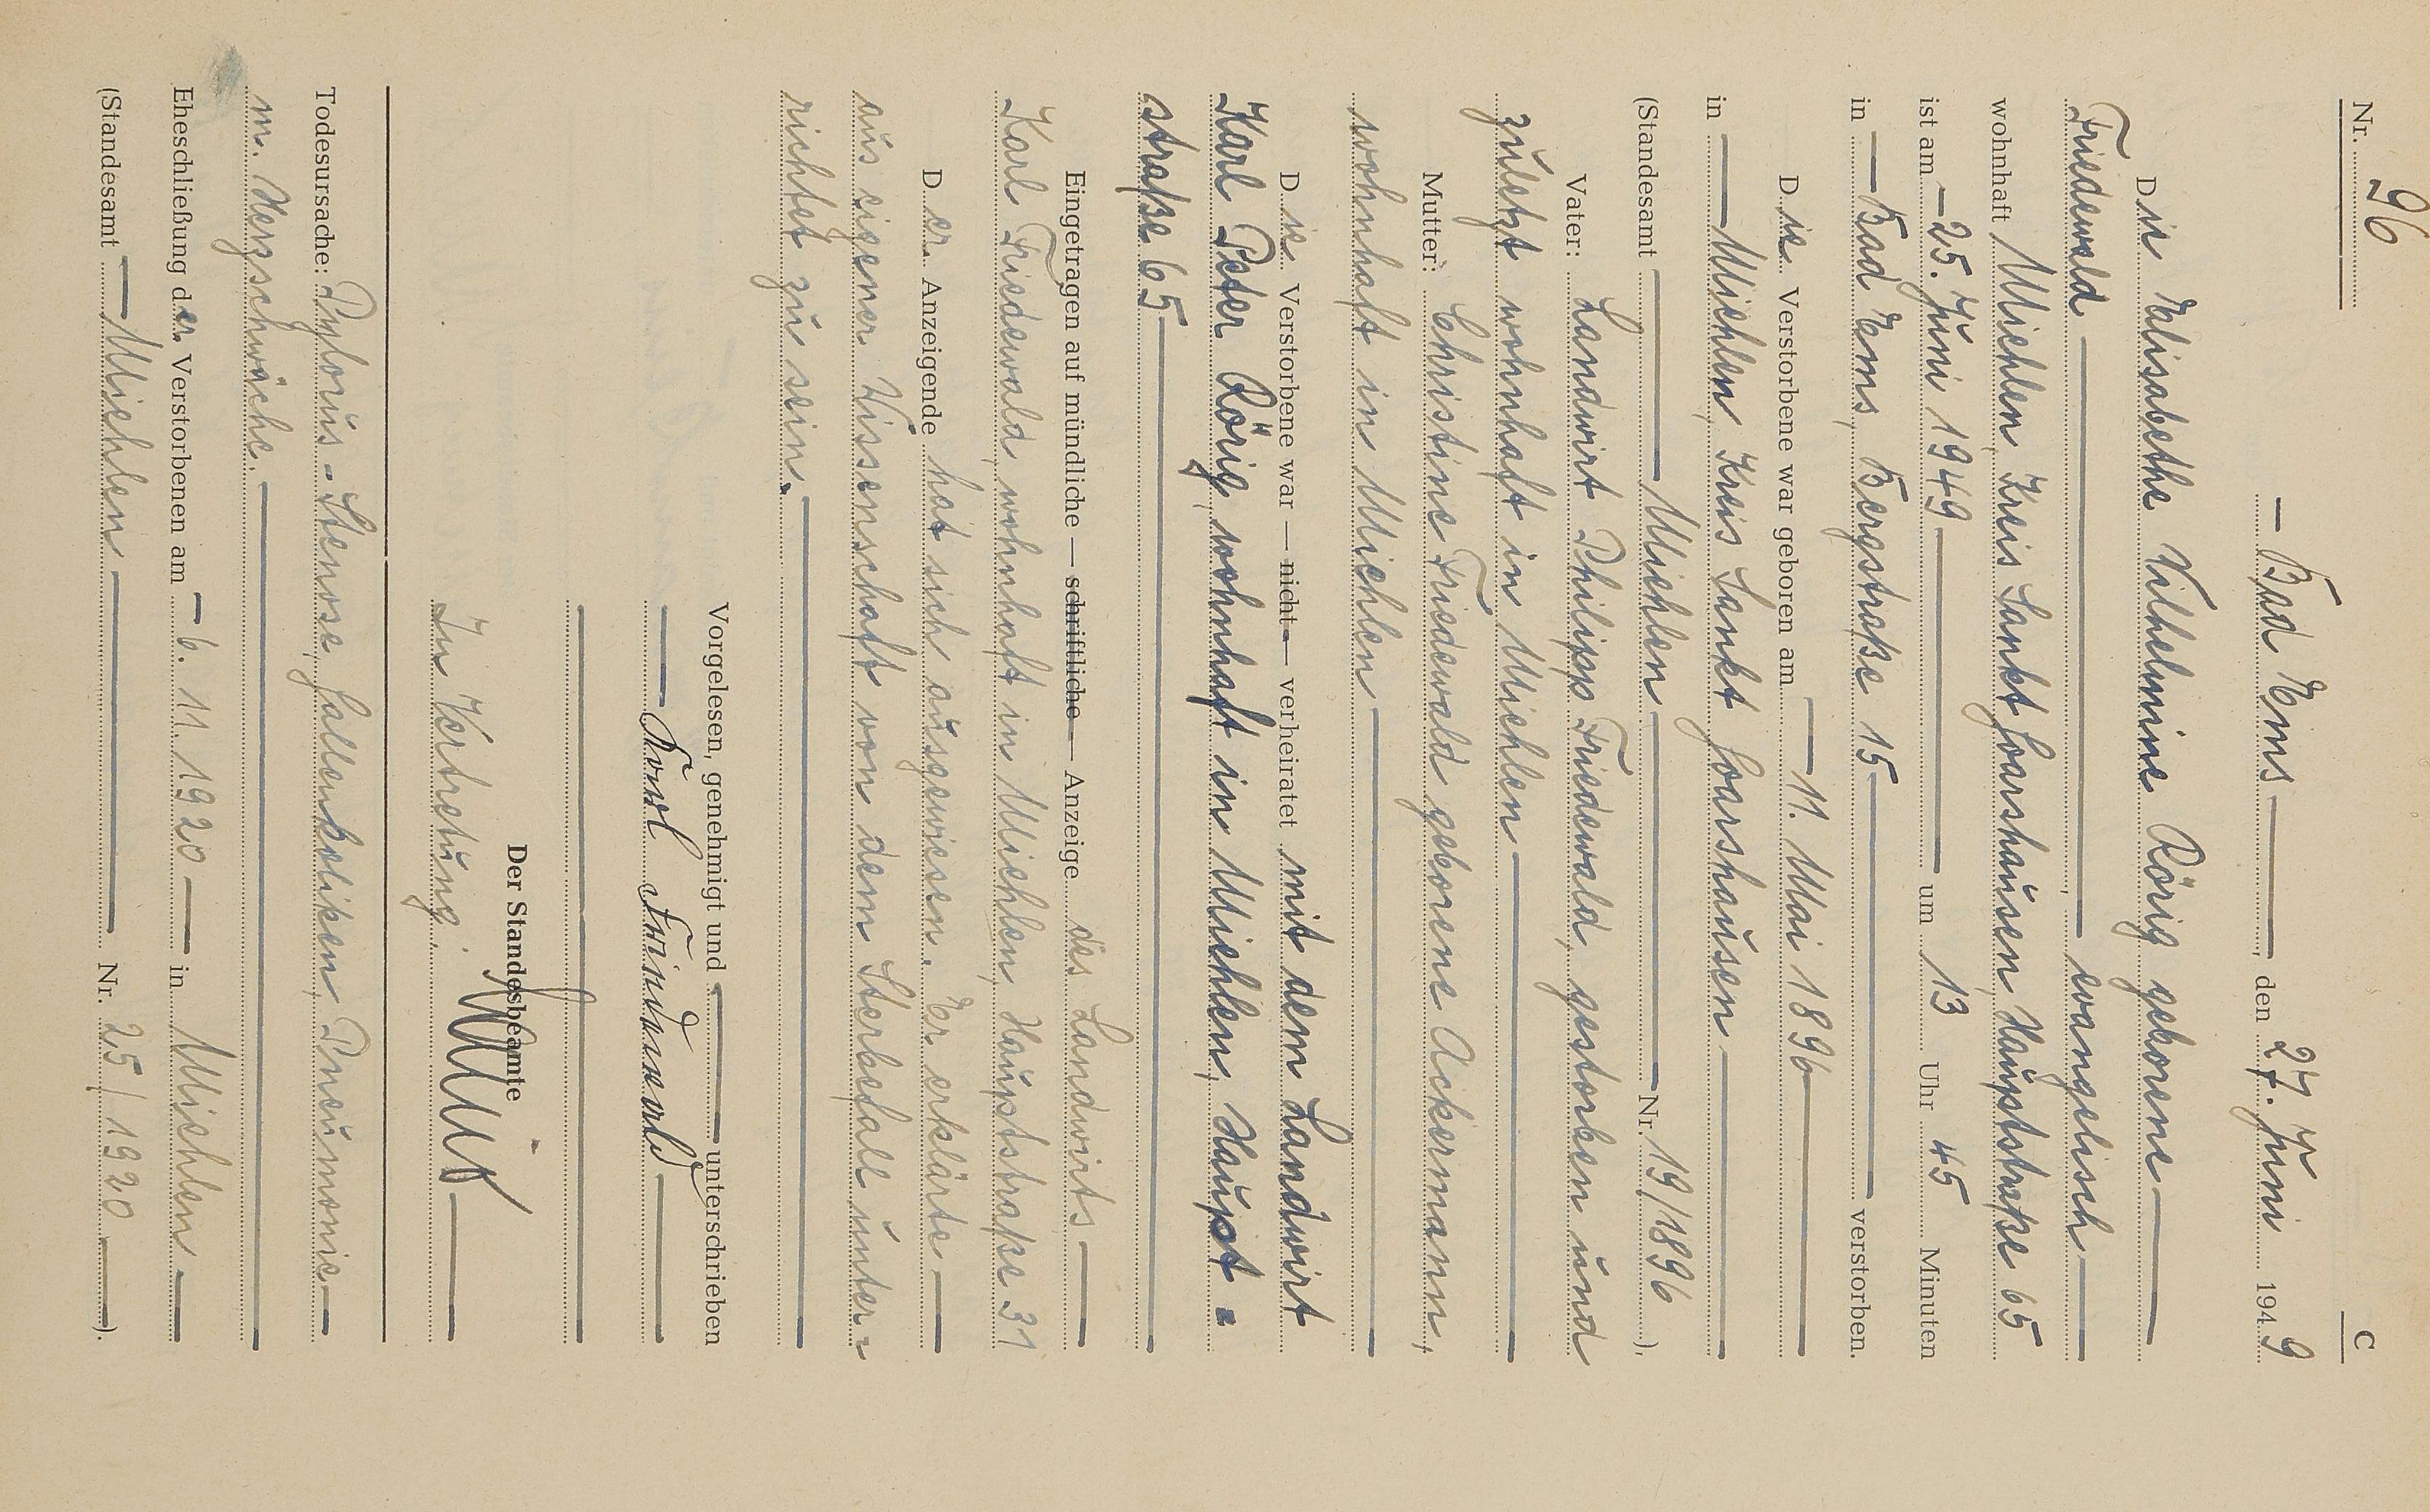 Nr. 96
C
— Bad Ems —, den 27. Juni 1949
Die Elisabethe Wilhelmine Rörig geborene —
Friedewald —, evangelisch —
wohnhaft Miehlen, Kreis Sankt Goarshausen, Hauptstraße 65
ist am — 25. Juni 1949 — um 13 Uhr 45 Minuten
in — Bad Ems, Bergstraße 15 — verstorben.
Die Verstorbene war geboren am — 11. Mai 1896 —
in — Miehlen, Kreis Sankt Goarshausen —
(Standesamt — Miehlen — Nr. 19/1896),
Vater: Landwirt Philipp Friedewald, gestorben und
zuletzt wohnhaft in Miehlen —
Mutter: Christine Friedewald geborene Ackermann,
wohnhaft in Miehlen —
Die Verstorbene war — nicht — verheiratet mit dem Landwirt
Karl Peter Rörig, wohnhaft in Miehlen, Haupt-
straße 65 —
Eingetragen auf mündliche — schriftliche — Anzeige des Landwirts —
Karl Friedewald, wohnhaft in Miehlen, Hauptstraße 31
Der Anzeigende hat sich ausgewiesen. Er erklärte —
aus eigener Wissenschaft von dem Sterbefall unter-
richtet zu sein. —
Vorgelesen, genehmigt und — unterschrieben
— Karl Friedewald —
Der Standesbeamte
In Vertretung:
Todesursache: Pylorus-Stenose, Gallenkoliken, Pneumonie —
m. Herzschwäche. —
Eheschließung der Verstorbenen am — 6. 11. 1920 — in Miehlen —
(Standesamt — Miehlen — Nr. 25/1920 —).